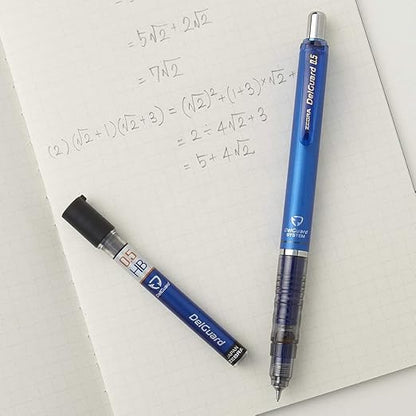 = 5√2 + 2√2
= 7√2
(2) (√2 + 1)(√2 + 3) = (√2)² + (1+3)×√2 +
= 2 + 4√2 + 3
= 5 + 4√2
ZEBRA DelGuard 0.5
DelGuard
SYSTEM
0.5
HB
DelGuard
DelGuard
JAPAN
ZEBRA